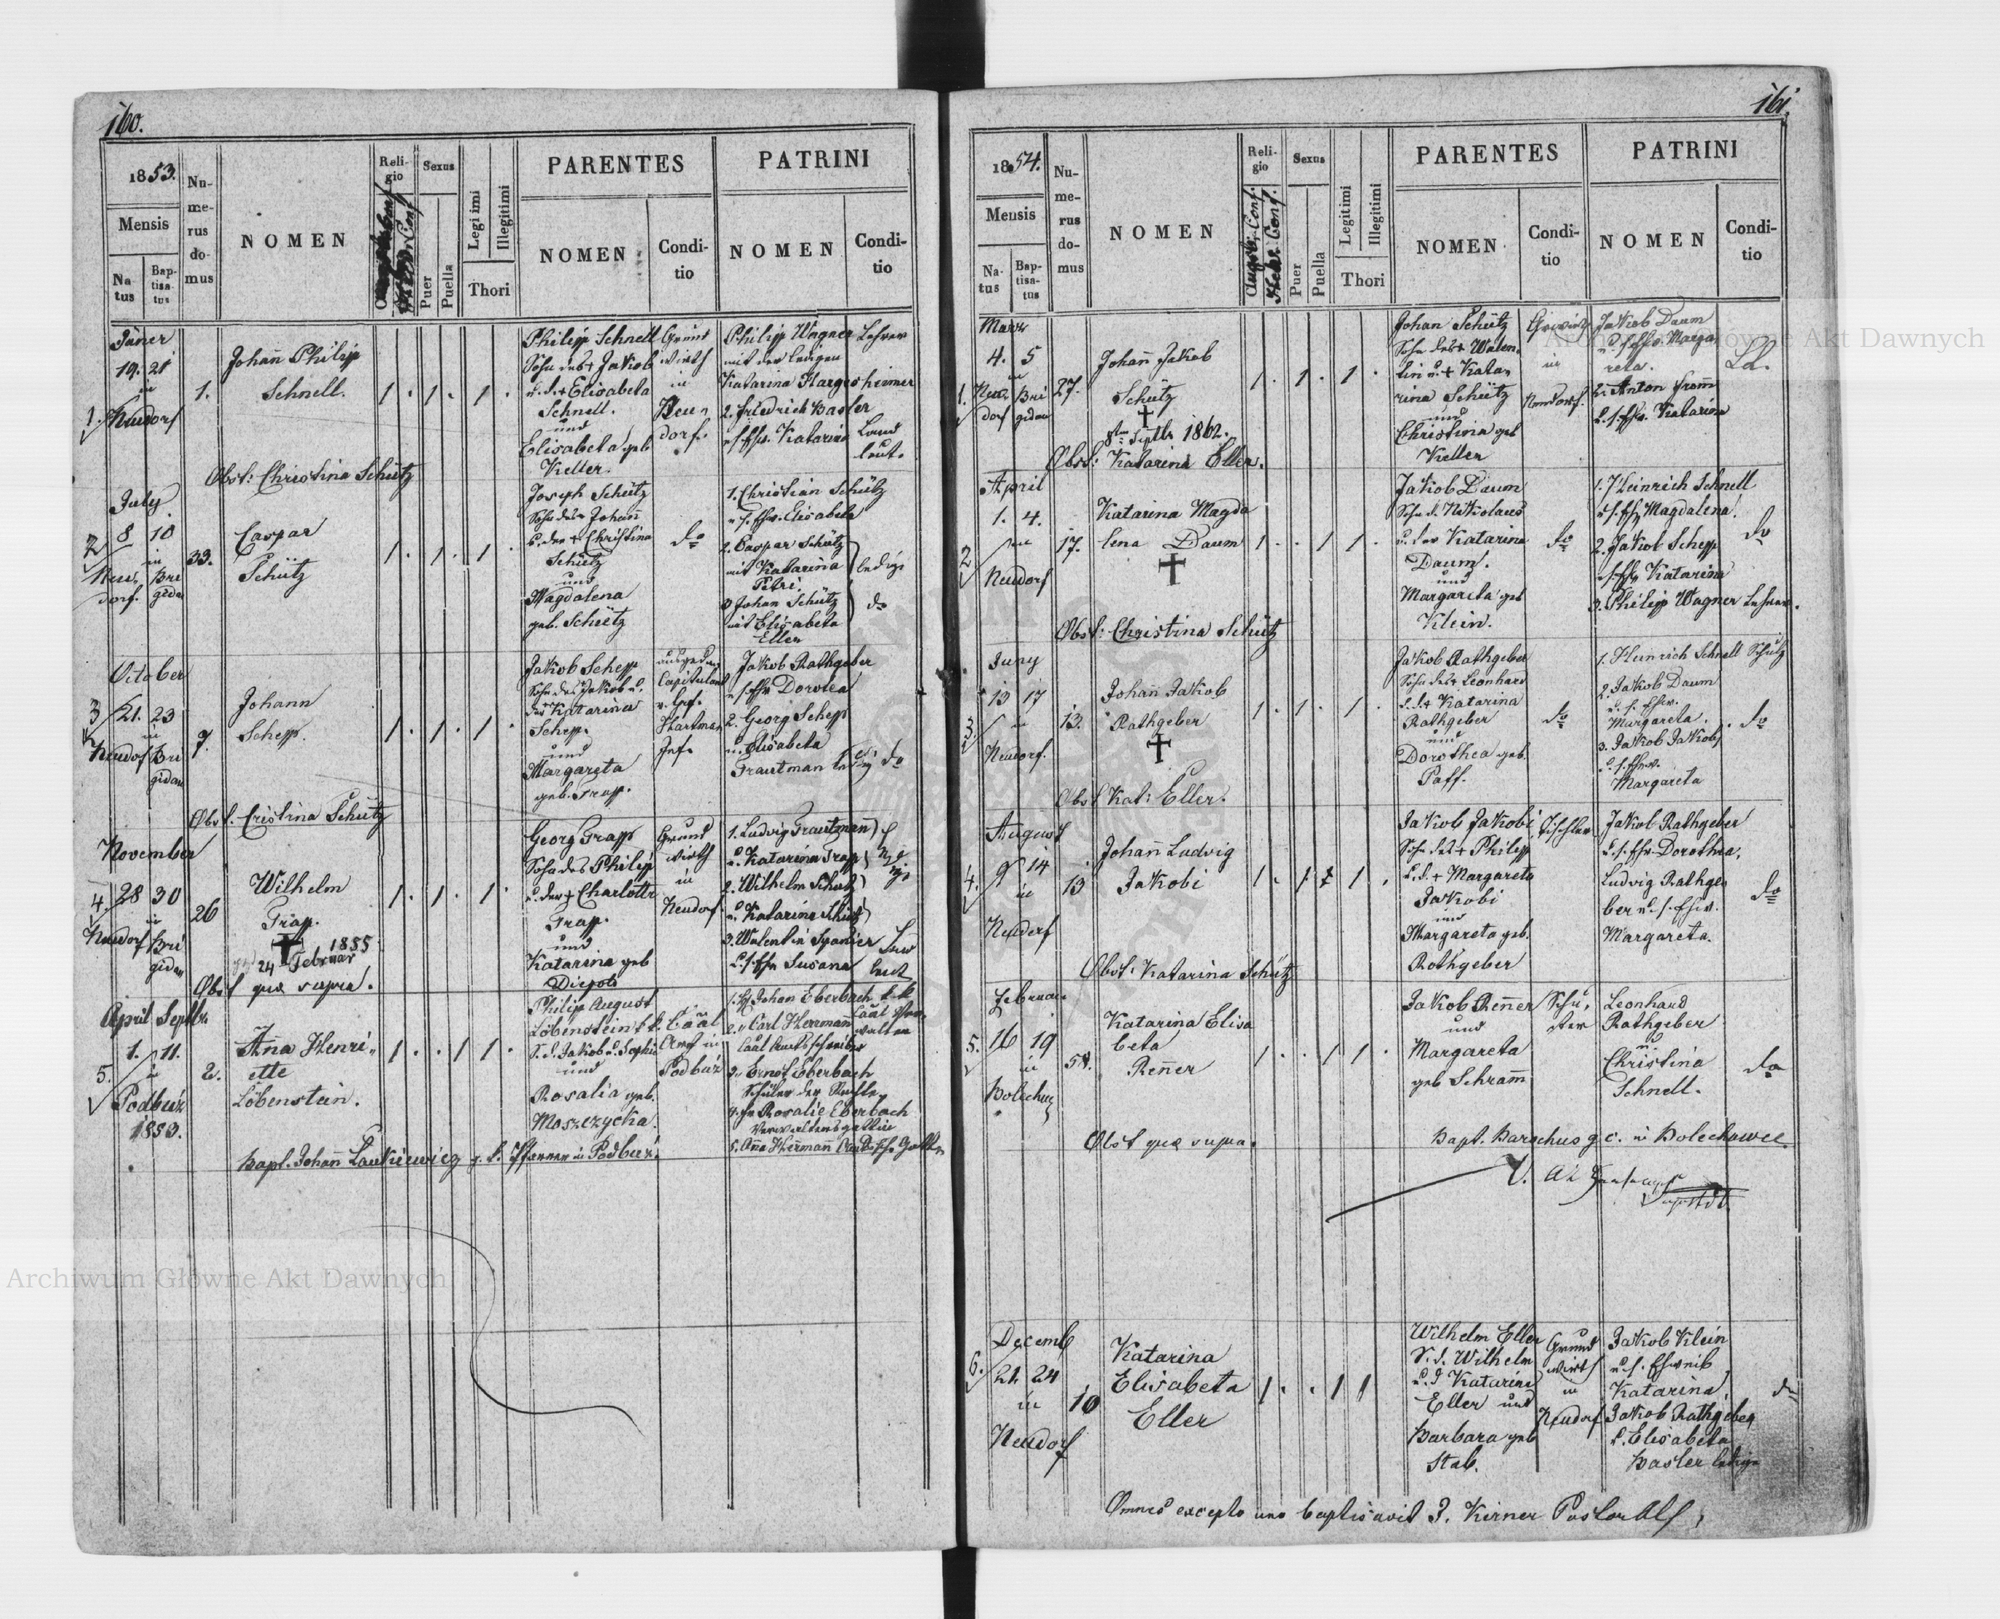 160.
1853.
Mensis
Na
tus
Bap-
tisa-
tus
Nu-
me-
rus
do-
mus
NOMEN
Reli-
gio
Sexus
Puer
Puella
Legitimi
Illegitimi
Thori
PARENTES
NOMEN
Condi-
tio
PATRINI
NOMEN
Condi-
tio
Jäner
19. 21
in
1. Neudorf
1.
Johañ Philipp
Schnell.
1. 1. 1.
Philipp Schnell
Sohn des + Jakob
u. d. + Elisabeta
Schnell.
und
Elisabeta geb
Keller.
Grund
wirth
in
Neu-
dorf.
Philipp Wagner Lehrer
mit der ledigen
Katarina Hargesheimer
2. Friedrich Basler
Katarina
Land
leute
Obst: Christina Schütz
July
2 8 10
in
Neu, Bri
dorf. gidau
33.
Caspar
Schütz
1. 1. 1.
Joseph Schütz
Sohn des Johañ
u. der + Christina
Schütz
und
Magdalena
geb. Schütz
do
1. Christian Schütz
Elisabeta
2. Caspar Schütz
mit Katarina
Petri.
ledig
3 Johan Schütz
mit Elisabeta
Eller
do
October
3 21. 23
in
Neudorf Bri
gidau
7.
Johann
Schepp.
1. 1. 1.
Jakob Schepp
Sohn des Jakob u.
der Katarina
Schepp.
und
Margareta
geb. Trapp.
Jakob Rathgeber
Dorotea
2. Georg Schepp
u. Elisabeta
Trautman ledig do
Obst. Cristina Schütz
November
4. 28 30
in
Neudorf Bri
gidau
26
Wilhelm
Trapp.
1855
24 Februar
1. 1. 1.
Georg Trapp
Sohn des Philipp
u. der + Charlotte
Trapp.
und
Katarina geb
Diepolt
Grund
wirth
in
Neudorf
1. Ludwig Trautzmañ
u. Katarina Trapp
2. Wilhelm Schütz
u. Katarina Schütz
3. Walentin Spanier
Susana
Obst quæ supra.
April Septbr.
1. 11.
in
5.
Podbuz
1853.
2.
Ana Henri-
ette
Löbenstein.
1. 1 1.
Philip August
Löbenstein
S. d. Jakob u. Sophie
und
Rosalia geb.
Moszczycka.
Podbuz
1. H Johan Eberbach
2. Carl Herrmann
3. Ernst Eberbach
Schüler der
4. Fr Rosalie Eberbach
Verwalters gattin
5. Aña Herrmañ
Bapt. Johañ Laukiewicz Pfarrer in Podbuz.
161.
1854.
Mensis
Na-
tus
Bap-
tisa-
tus
Nu-
me-
rus
do-
mus
NOMEN
Reli-
gio
Augsb. Conf.
Helv. Conf.
Sexus
Puer
Puella
Legitimi
Illegitimi
Thori
PARENTES
NOMEN
Condi-
tio
PATRINI
NOMEN
Condi-
tio
März
4. 5
in
1. Neu, Bri
dorf gidau
27.
Johañ Jakob
Schütz
Septbr 1862.
1. 1. 1.
Johan Schütz
Sohn des + Walen-
tin u. + Kata-
rina Schütz
und
Christina geb
Keller
Neudorf.
Jakob Daum
Marga-
reta.
2. Anton
Katarina
Obst: Katarina Eller.
April
1. 4.
in
2
Neudorf
17.
Katarina Magda
lena Daum
1. 1 1.
Jakob Daum
Sohn d. Nikolaus
u. der Katarina
Daum.
und
Margareta geb
Klein.
do
1. Heinrich Schnell
Magdalena.
2. Jakob Schepp
Katarina
3. Philipp Wagner Lehrer.
do
Obst: Christina Schütz
Juny
13 17
in
3.
Neudorf.
12.
Johañ Jakob
Rathgeber
1. 1. 1.
Jakob Rathgeber
Sohn des + Leonhard
u. d. + Katarina
Rathgeber
und
Dorothea geb.
Paff.
do
1. Heinrich Schnell Schulz
2. Jakob Daum
Margareta.
3. Jakob Jakobi
Margareta
do
Obst Kat: Eller.
August
4. 9 14
in
Neudorf
13
Johañ Ludvig
Jakobi
1. 1 1.
Jakob Jakobi
Sohn des + Philipp
u. d. + Margareta
Jakobi
und
Margareta geb.
Rothgeber
Tischler
Jakob Rathgeber
Dorothea,
Ludvig Rathge-
ber
Margareta.
do
Obst. Katarina Schütz
Februar
5. 16 19
in
Bolechuv
58.
Katarina Elisa
beta
Reñer
1. 1 1.
Jakob Reñer
und
Margareta
geb Schram̄
Schu-
ster
Leonhard
Rathgeber
u.
Christina
Schnell.
do
Obst quæ supra.
Bapt. Barochus g. c. in Bolechowce
Decemb
6. 21. 24
in
Neudorf
10
Katarina
Elisabeta
Eller
1. 1 1
Wilhelm Eller
S. d. Wilhelm
u. d Katarina
Eller und
Barbara geb
Stab.
Grund
wirth
in
Neudorf
Jakob Klein
Katarina,
Jakob Rathgeber
u. Elisabeta
Basler ledige
do
Omnes excepto uno baptisavit J. Kirner Pastor
Archiwum Główne Akt Dawnych
Archiwum Główne Akt Dawnych